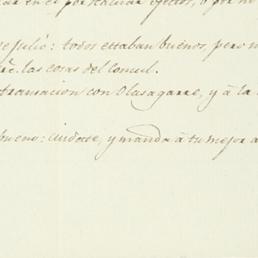 en el por realizar efectos, o por no
de Julio: todos estaban buenos, pero n
las cosas del Consul.
transacion con Olasagarre, y à la
bueno: cuidate, y manda à tu mejor a